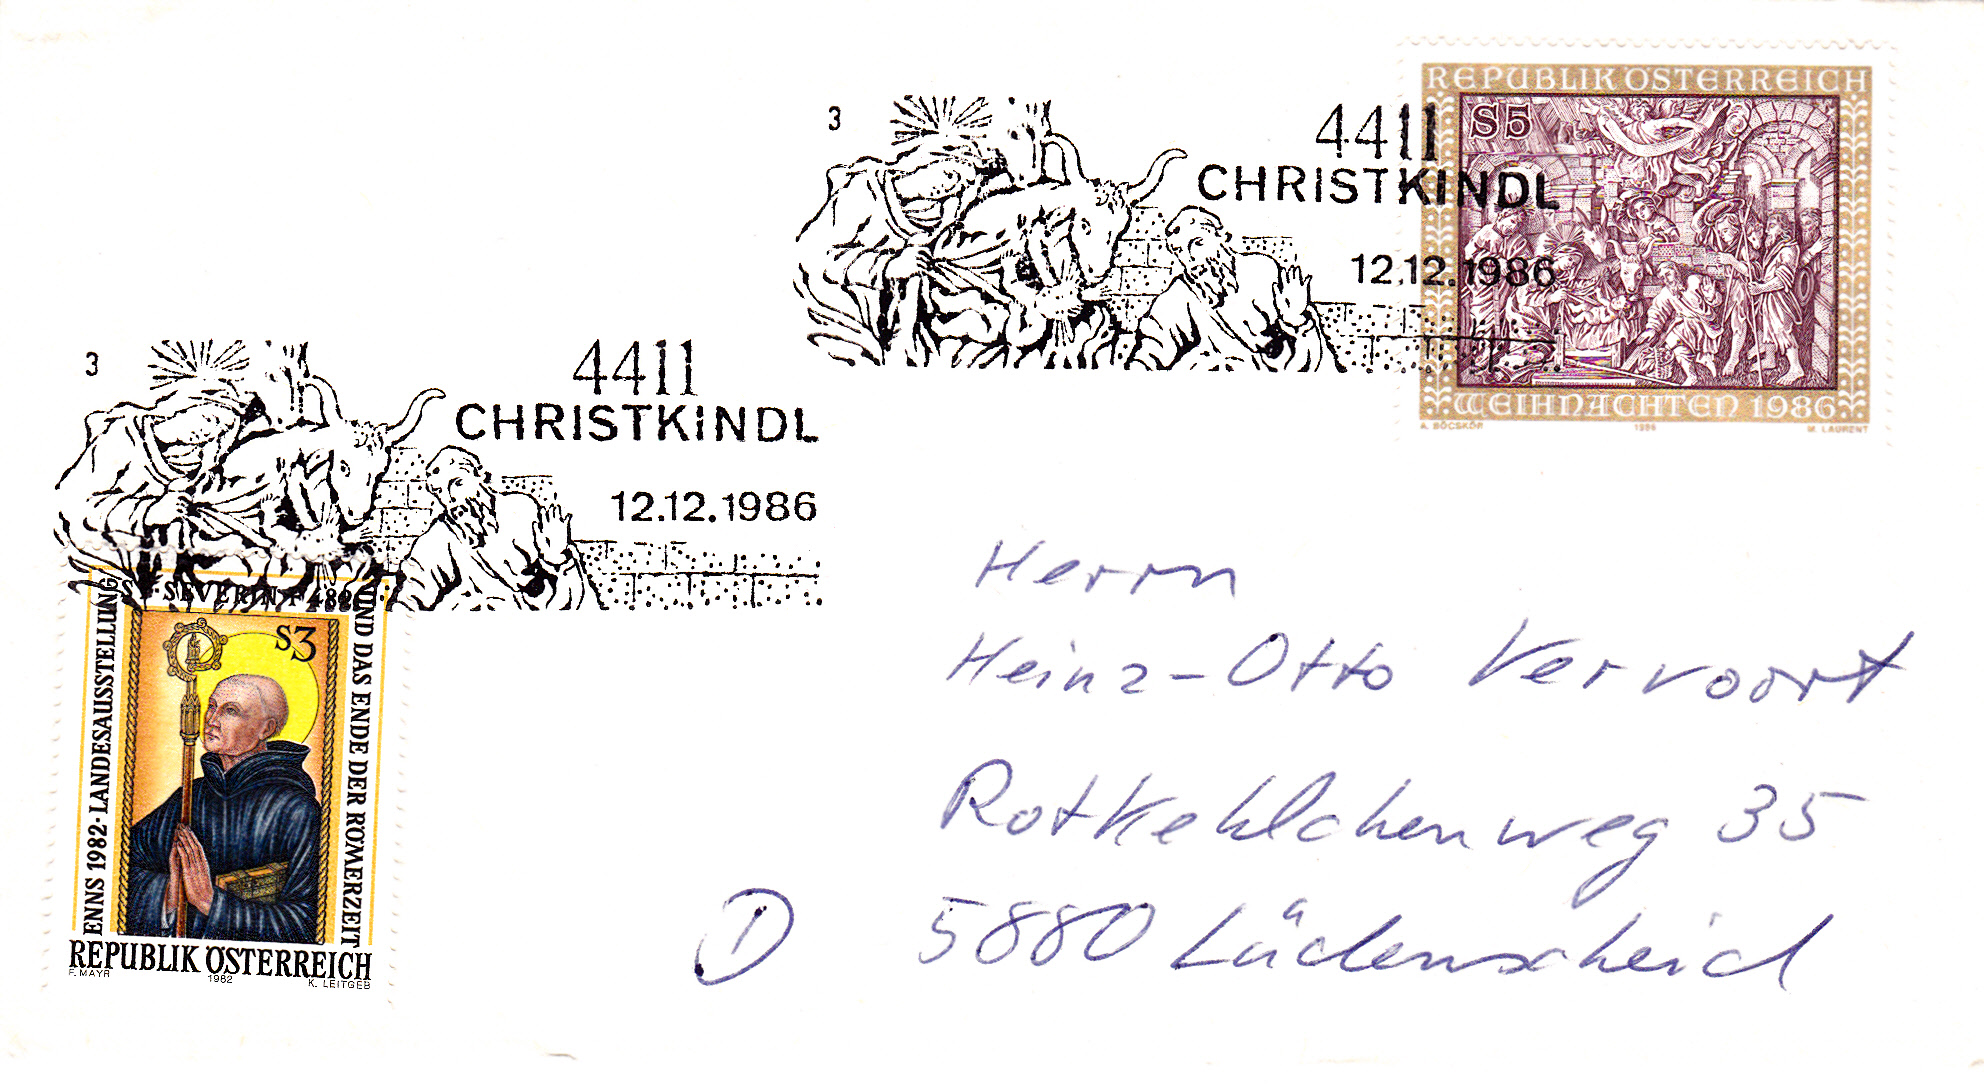 REPUBLIK ÖSTERREICH
S5
WEIHNACHTEN 1986
A. BÖCSKÖR 1986 M. LAURENT
3
4411
CHRISTKINDL
12.12.1986
3
4411
CHRISTKINDL
12.12.1986
ENNS 1982 · LANDESAUSSTELLUNG
SEVERIN † 482
UND DAS ENDE DER RÖMERZEIT
S3
REPUBLIK ÖSTERREICH
F. MAYR 1982 K. LEITGEB
Herrn
Heinz-Otto Vervoort
Rotkehlchenweg 35
D 5880 Lüdenscheid